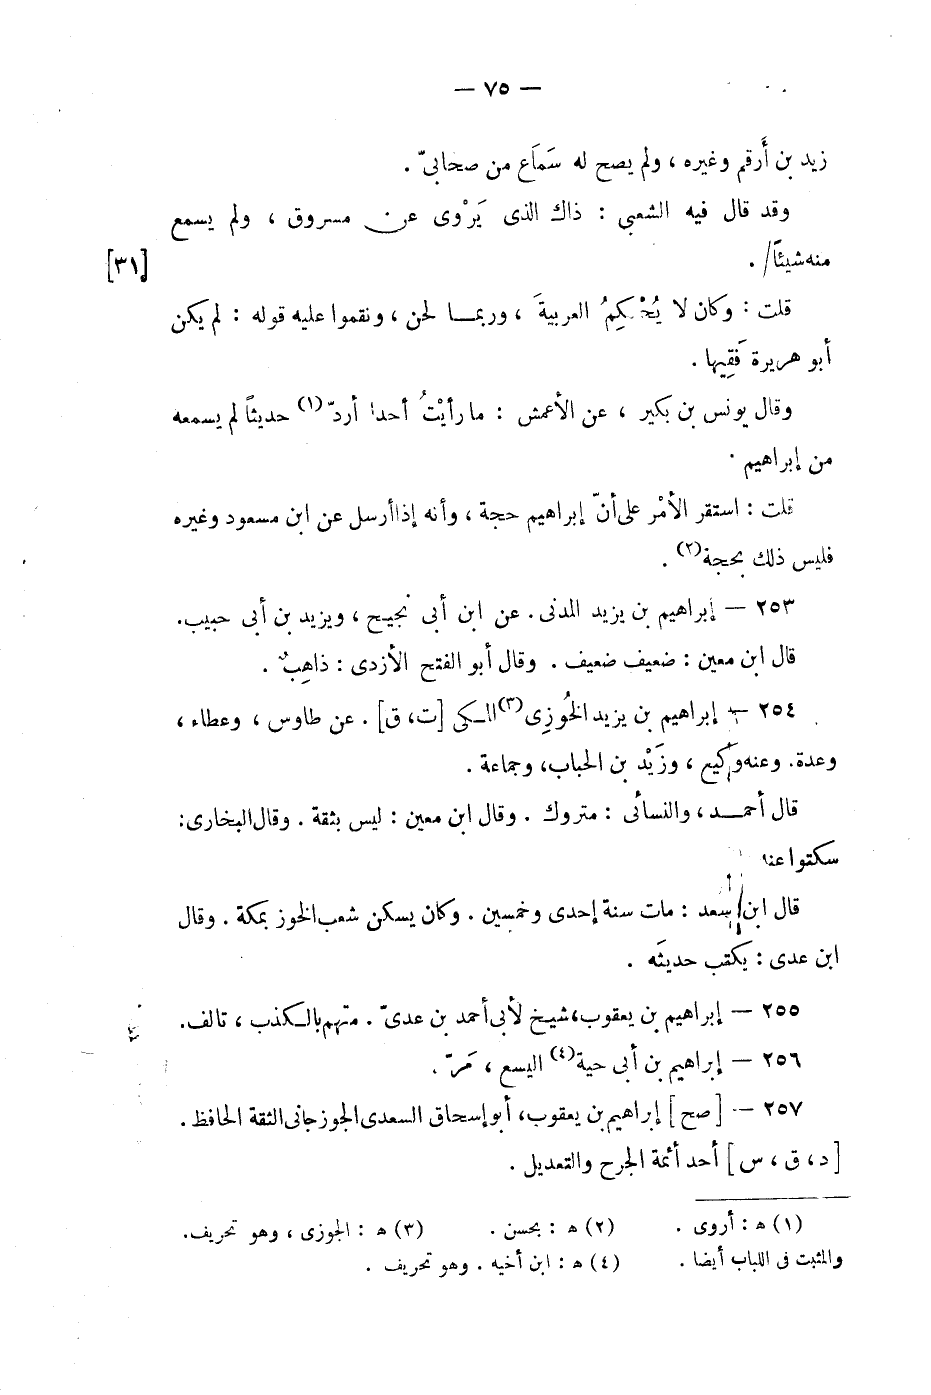 — ٧٥ —
زيد بن أَرقم وغيره ، ولم يصح له سَمَاع من صحابىّ .
وقد قال فيه الشعبى : ذاك الذى يَرْوى عن مسروق ، ولم يسمع
منه شيئاً/ . [٣١]
قلت : وكان لا يُحْكِمُ العربيةَ ، وربمـا لحن ، ونقموا عليه قوله : لم يكن
أبو هريرة فَقِيها .
وقال يونس بن بكير ، عن الأعمش : ما رأيْتُ أحدا أردّ(١) حديثاً لم يسمعه
من إبراهيم .
قلت : استقر الأمْر على أنّ إبراهيم حجة ، وأنه إذا أرسل عن ابن مسعود وغيره
فليس ذلك بحجة(٢) .
٢٥٣ — إبراهيم بن يزيد المدنى . عن ابن أبى نجيح ، ويزيد بن أبى حبيب.
قال ابن معين : ضعيف ضعيف . وقال أبو الفتح الأزدى : ذاهِبٌ .
٢٥٤ — إبراهيم بن يزيد الخُوزِى(٣) المـكى [ت، ق] . عن طاوس ، وعطاء ،
وعدة. وعنه وَكيع ، وزَيْد بن الحباب، وجماعة .
قال أحمـد ، والنسائى : متروك . وقال ابن معين : ليس بثقة . وقال البخارى:
سكتوا عنه
قال ابن سعد : مات سنة إحدى وخمسين . وكان يسكن شعب الخوز بمكة . وقال
ابن عدى : يكتب حديثَه .
٢٥٥ — إبراهيم بن يعقوب، شيخ لأبى أحمد بن عدىّ . متهم بالـكذب ، تالف.
٢٥٦ — إبراهيم بن أبى حية(٤) اليسع ، مَرّ .
٢٥٧ — [صح] إبراهيم بن يعقوب، أبو إسحاق السعدى الجوزجانى الثقة الحافظ .
[د، ق ، س] أحد أئمة الجرح والتعديل .
(١) ه : أروى . (٢) ه : بحسن . (٣) ه : الجوزى ، وهو تحريف.
والمثبت فى اللباب أيضا . (٤) ه : ابن أخيه . وهو تحريف .